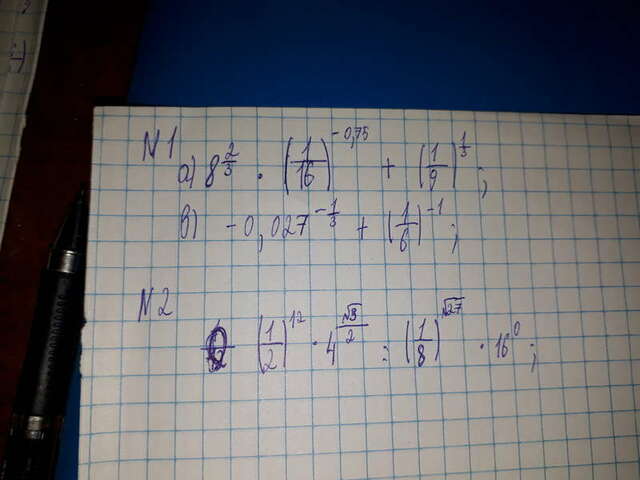 N1
а) 8^(2/3) · (1/16)^(-0,75) + (1/9)^(1/3) ;
б) -0,027^(-1/3) + (1/6)^(-1) ;
N2
(1/2)^(√12) · 4^(√3/2) : (1/8)^(√27) · 16^0 ;